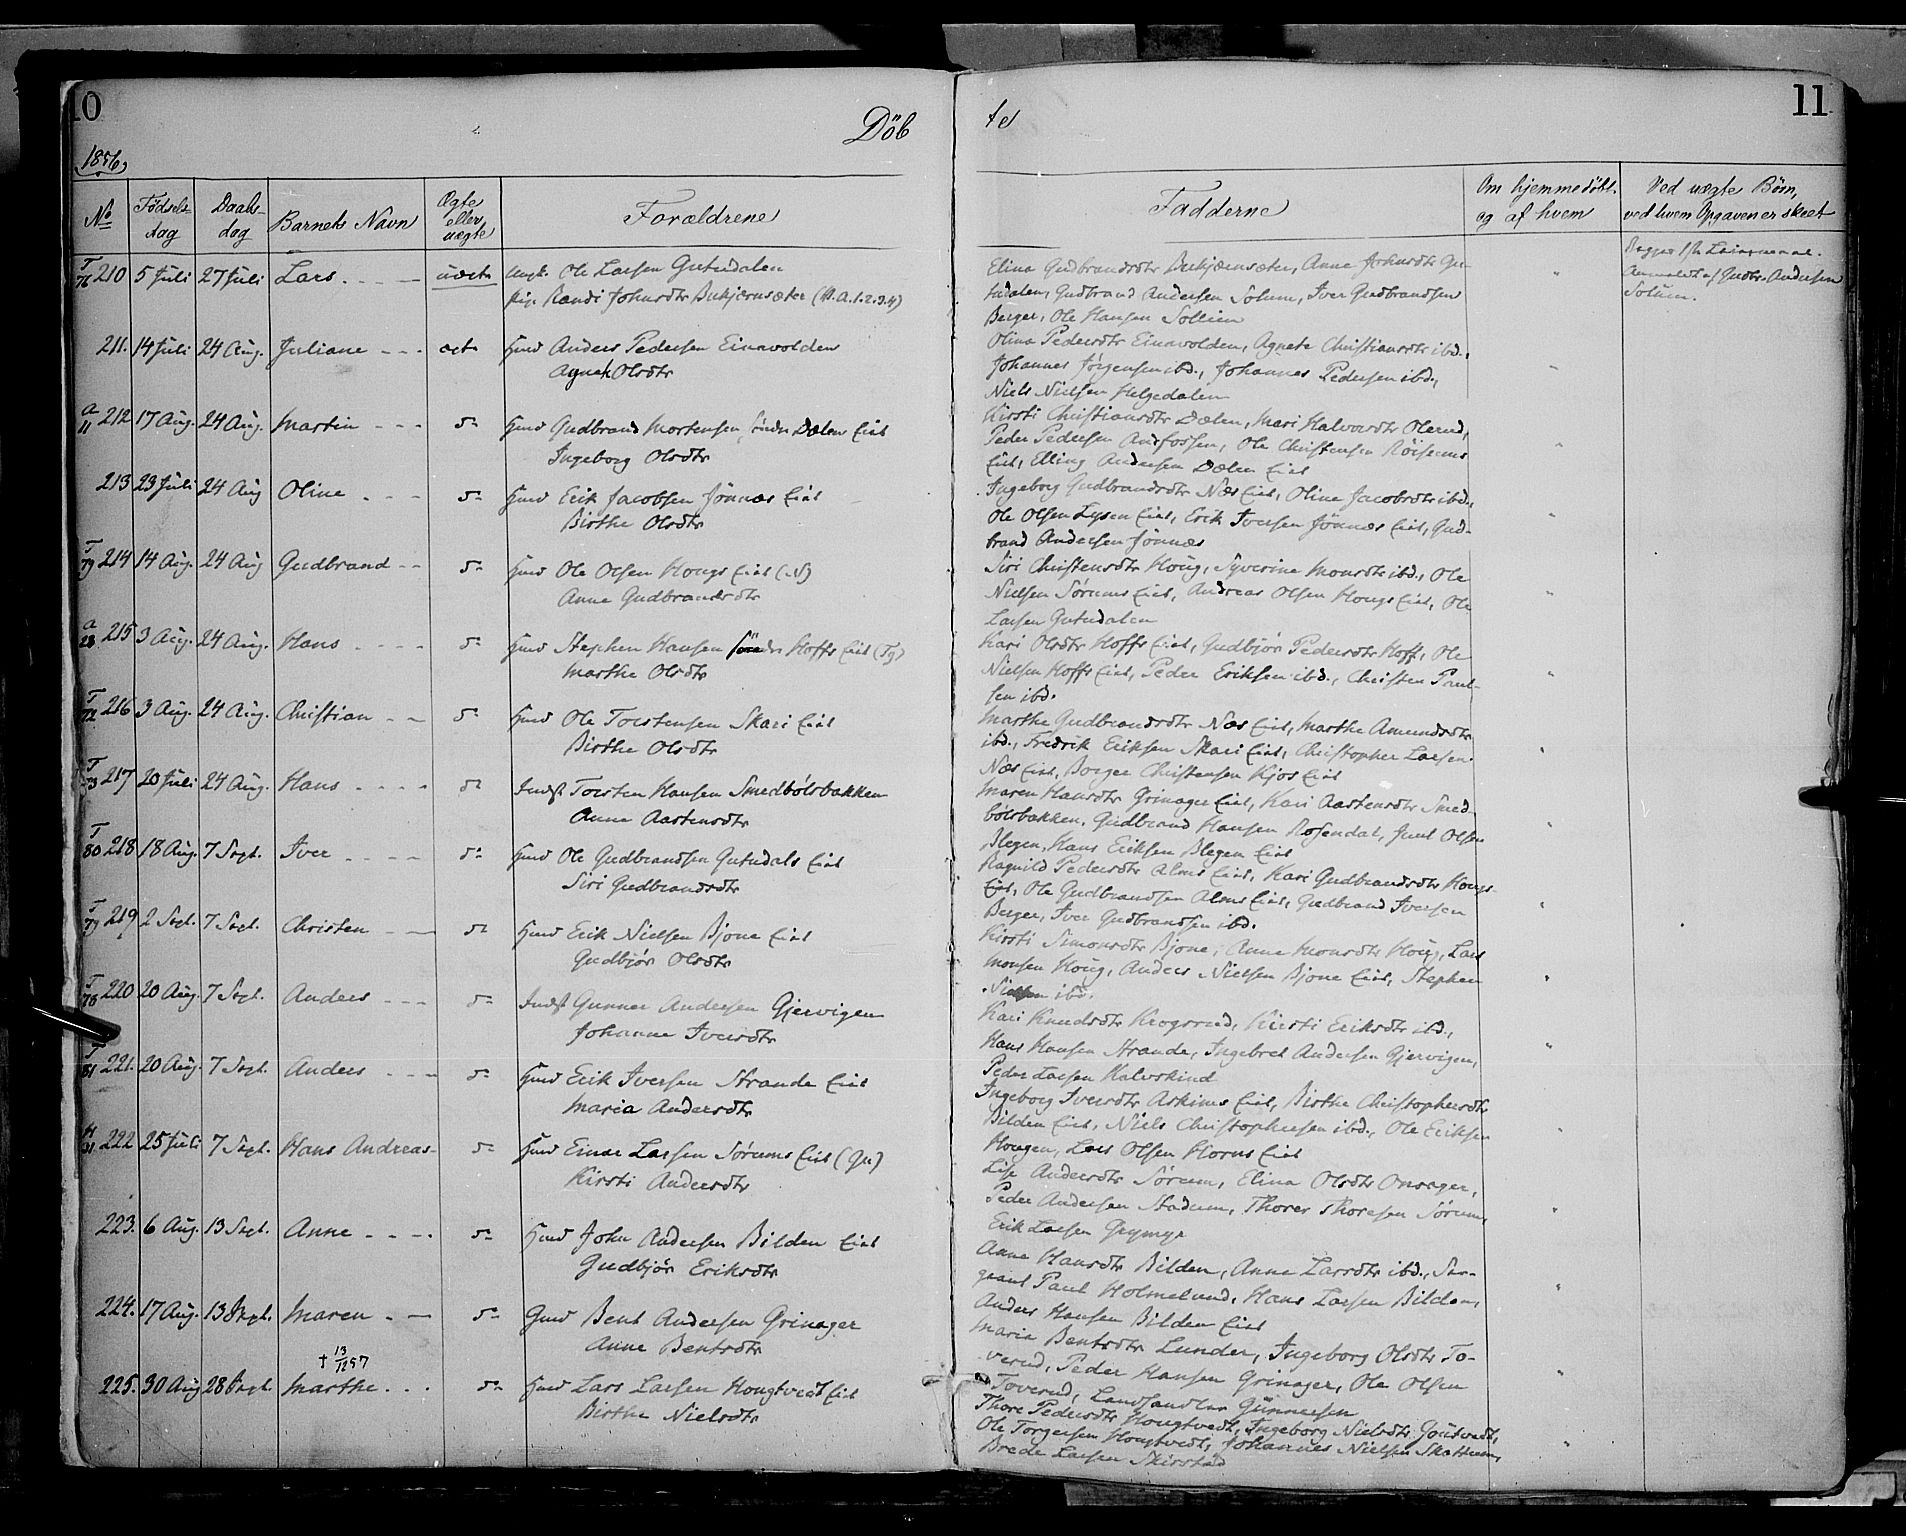 10
Döb
te
11
1856
No
Fødsels-
dag
Daabs-
dag
Barnets Navn
Ægte
eller
uægte
Forældrene
Fadderne
Om hjemmedöbt
og af hvem
Ved uægte Börn,
ved hvem Opgaven er skeet
T
76 210 5 Juli 27 Juli Lars uægte Ungk. Ole Larsen Gutudalen
Pig. Randi Johnsdtr Bukjærnsæter (N.A.1.2.3.4)
Elina Gudbrandsdtr Bukjærnsæter, Anne Johnsdtr Gu-
tudalen, Gudbrand Andersen Solum, Iver Gudbrandsen
Berger, Ole Hansen Sollien
Andersen
Solum.
211. 14 Juli 24 Aug. Juliane ægte Gmd Anders Pedersen Einavolden
Agnete Olsdtr
Olina Pedersdtr Einavolden, Agnete Christiansdtr ibd.,
Johannes Jørgensen ibd., Johannes Pedersen ibd.,
Niels Nielsen Helgedalen
a
11 212 17 Aug. 24 Aug. Martin do Gmd Gudbrand Mortensen Søndr Dælen Eiet
Ingeborg Olsdtr
Kirsti Christiansdtr Dælen, Mari Halvorsdtr Olerud,
Peder Pedersen Andfossen, Ole Christensen Röisenms
Eiet, Elling Andersen Dælen Eiet
213 23 Juli 24 Aug Oline do Gmd Erik Jacobsen Jönnæs Eiet
Birthe Olsdtr
Ingeborg Gudbrandsdtr Næs Eiet, Oline Jacobsdtr ibd.,
Ole Olsen Lysen Eiet, Erik Iversen Jönnæs Eiet, Gud-
brand Andersen Jönnæs
T
79 214 14 Aug. 24 Aug Gudbrand do Gmd Ole Olsen Hougs Eiet (N)
Anne Gudbrandsdtr
Siri Christensdtr Houg, Syverine Monsdtr ibd., Ole
Nielsen Sørums Eiet, Andreas Olsen Hougs Eiet, Ole
Larsen Gutudalen
a
28 215 3 Aug. 24 Aug. Hans do Gmd Stephen Hansen Söndr Hoffs Eiet (Tj)
Marthe Olsdtr
Kari Olsdtr Hoffs Eiet, Gudbjør Pedersdtr Hoff, Ole
Nielsen Hoffs Eiet, Peder Eriksen ibd., Christen Paul-
sen ibd.
T
72 216 3 Aug. 24 Aug. Christian do Gmd Ole Torstensen Skari Eiet
Birthe Olsdtr
Marthe Gudbrandsdtr Næs Eiet, Marthe Amundsdtr
ibd., Fredrik Eriksen Skari Eiet, Christopher Larsen
Næs Eiet, Borger Christensen Kjos Eiet
T
73 217 20 Juli 24 Aug. Hans do Indst Torsten Hansen Smedbölsbakken
Anne Aastensdtr
Maren Hansdtr Grinager Eiet, Kari Aastensdtr Smed-
bölsbakken, Gudbrand Hansen Rosendal, Juul Olsen
Blegen, Hans Eriksen Blegen Eiet
T
80 218 18 Aug. 7 Sept. Iver do Gmd Ole Gudbrandsen Gutudals Eiet
Siri Gudbrandsdtr
Ragnild Pedersdtr Alms Eiet, Kari Gudbrandsdtr Hougs
Eiet, Ole Gudbrandsen Alms Eiet, Gudbrand Iversen
Berger, Iver Gudbrandsen ibd.
T
79 219 2 Sept. 7 Sept. Christen do Gmd Erik Nielsen Bjone Eiet
Gudbjör Olsdtr
Kirsti Simonsdtr Bjone, Anne Monsdtr Houg, Lars
Monsen Houg, Anders Nielsen Bjone Eiet, Stephen
Nielsen ibd.
T
78 220 20 Aug. 7 Sept. Anders do Indst Gunner Andersen Gjervigen
Johanne Iversdtr
Kari Knudsdtr Krogsrud, Kirsti Eriksdtr ibd.,
Hans Hansen Strande, Ingebret Andersen Gjervigen,
Peder Larsen Kalvskind
T
81 221. 20 Aug. 7 Sept. Anders do Gmd Erik Iversen Strande Eiet
Maria Andersdtr
Ingeborg Iversdtr Askims Eiet, Birthe Christophersdtr
Bilden Eiet, Niels Christophersen ibd., Ole Eriksen
Hougen, Lars Olsen Horns Eiet
H
31 222 25 Juli 7 Sept. Hans Andreas do Gmd Einar Larsen Sørums Eiet (Gr.)
Kirsti Andersdtr
Lise Andersdtr Sörum, Elina Olsdtr Onsager,
Peder Andersen Stadum, Thorer Thoresen Sörum,
Erik Larsen Grymyr
223. 6 Aug. 13 Sept. Anne do Gmd John Andersen Bilden Eiet
Gudbjör Eriksdtr
Anne Hansdtr Bilden, Anne Larsdtr ibd., Ser-
geant Paul Holmelund, Hans Larsen Bilden,
Anders Hansen Bilden Eiet
224. 17 Aug. 13 Sept. Maren do Gmd Bent Andersen Grinager
Anne Bentsdtr
Maria Bentsdtr Lunder, Ingeborg Olsdtr To-
verud, Peder Hansen Grinager, Ole Olsen
Toverud, Landhandler Günnersen
† 13/12 57
225. 30 Aug 28 Sept. Marthe do Gmd Lars Larsen Hougtvedt Eiet
Birthe Nielsdtr
Thore Pedersdtr Hougtvedt, Ingeborg Nielsdtr Goutvedt,
Ole Torgersen Hougtvedt, Johannes Nielsen Skattum,
Brede Larsen Skirstad